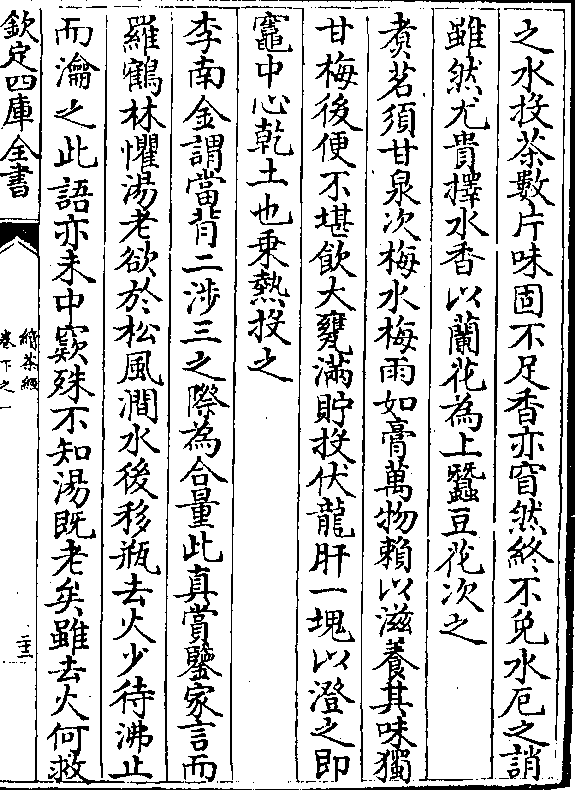 之水投茶數片味固不足香亦窅然終不免水厄之誚
雖然尤貴擇水香以蘭花為上蠶豆花次之
煑茗須甘泉次梅水梅雨如膏萬物賴以滋養其味獨
甘梅後便不堪飲大甕滿貯投伏龍肝一塊以澄之即
竈中心乾土也乗熱投之
李南金謂當背二涉三之際為合量此真賞鑒家言而
羅鶴林懼湯老欲於松風澗水後移瓶去火少待沸止
而瀹之此語亦未中窾殊不知湯既老矣雖去火何救
欽定四庫全書
續茶經
卷下之一
二十三